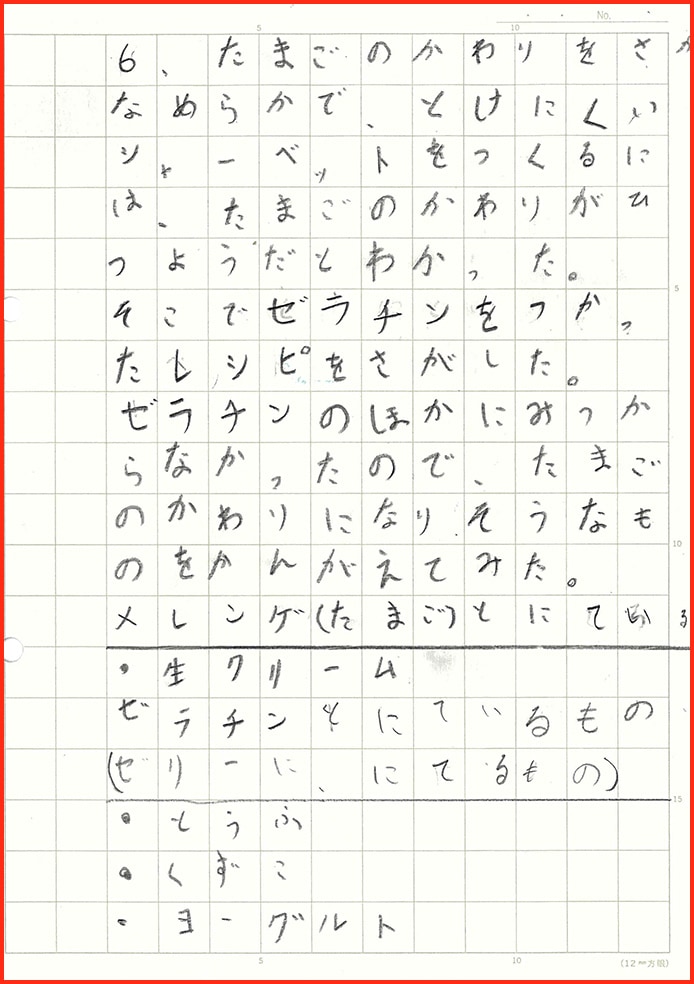 No.
5 10
6、たまごのかわりをさが
なめらかで、とけにくい
シャーベットをつくるに
は、たまごのかわりがひ
つようだとわかった。
5
そこでゼラチンをつかっ
たレシピをさがした。
ゼラチンのほかにみつか
らなかったので、たまご
のかわりになりそうなも
10
のをかんがえてみた。
メレンゲ(たまご)とにている
・生クリーム
ゼラチンとにているもの
(ゼリーに、にてるもの)
15
・とうふ
・くずこ
・ヨーグルト
5 10 (12mm方眼)